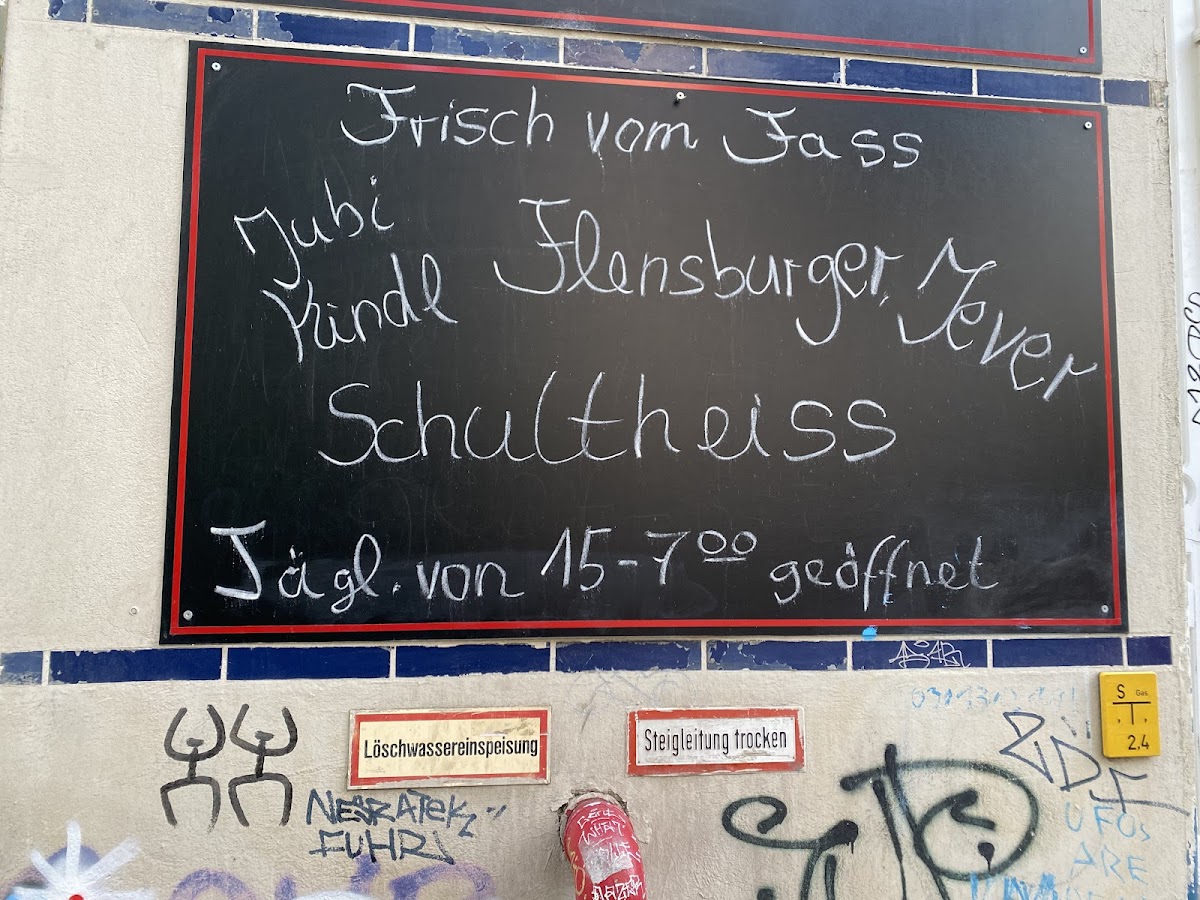 Frisch vom Fass
Jubi
Kindl
Flensburger, Jever
Schultheiss
Tägl. von 15-7⁰⁰ geöffnet
Löschwassereinspeisung
Steigleitung trocken
S Gas
T
2,4
UFOs
ARE